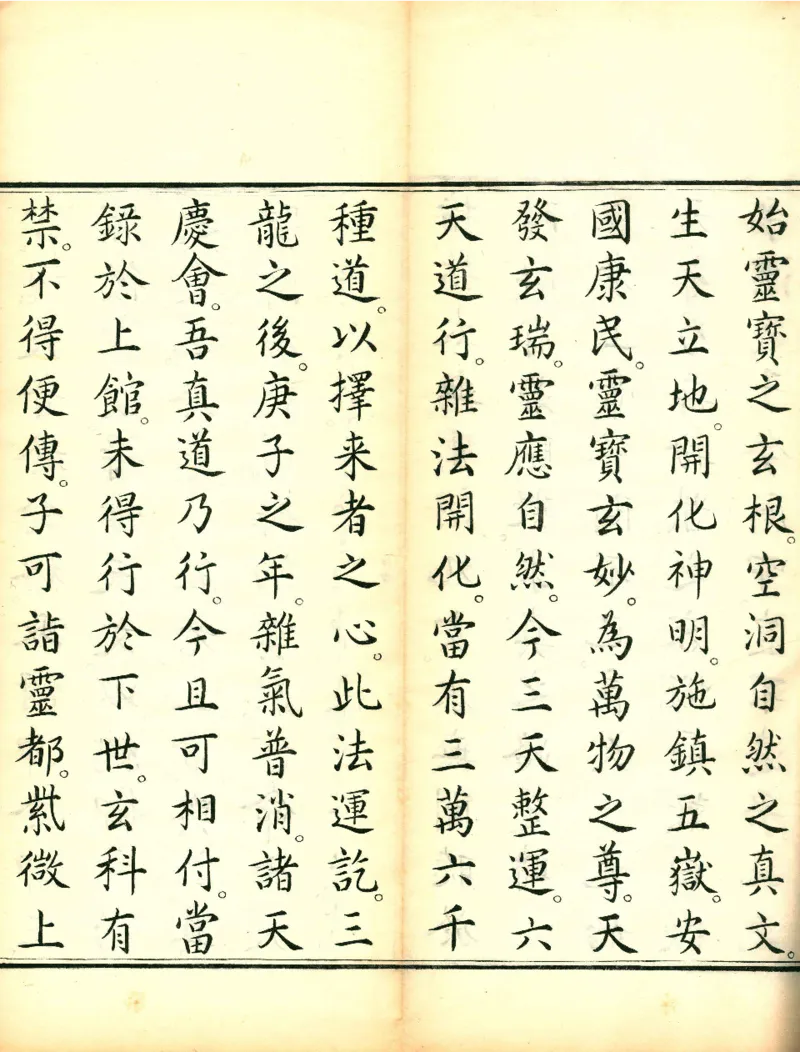 始靈寶之玄根。空洞自然之真文。
生天立地。開化神明。施鎮五嶽。安
國康民。靈寶玄妙。為萬物之尊。天
發玄瑞。靈應自然。今三天整運。六
天道行。雜法開化。當有三萬六千
種道。以擇来者之心。此法運訖。三
龍之後。庚子之年。雜氣普消。諸天
慶會。吾真道乃行。今且可相付。當
錄於上館。未得行於下世。玄科有
禁。不得便傳。子可詣靈都。紫微上